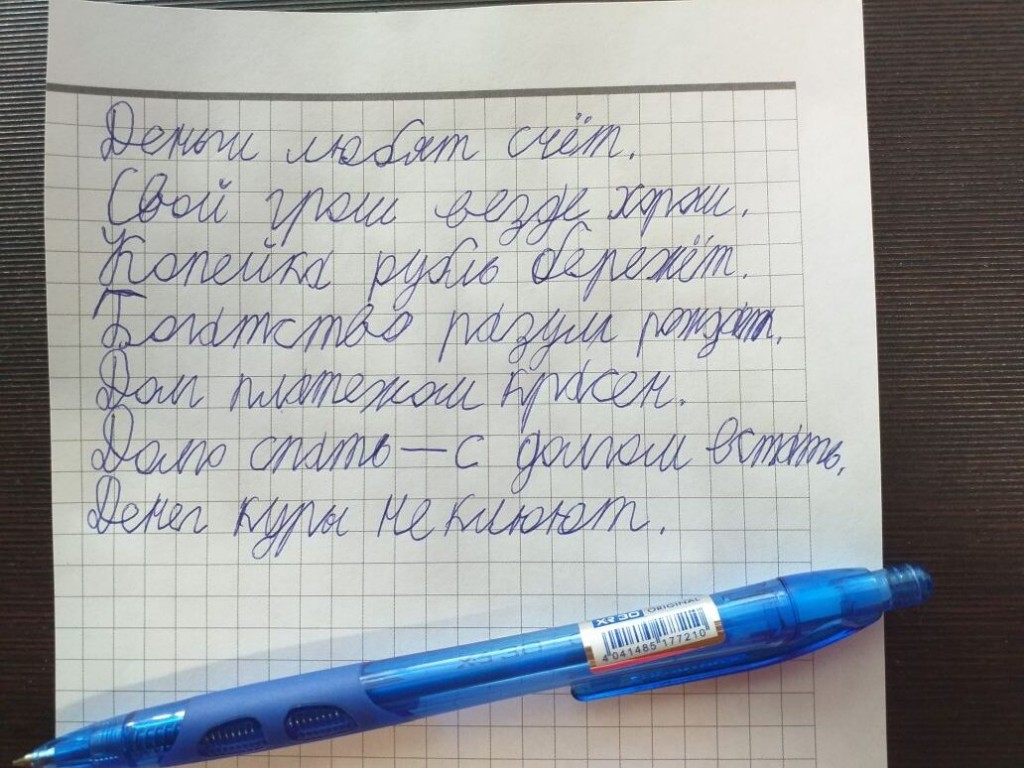 Деньги любят счёт.
Свой грош везде хорош.
Копейка рубль бережёт.
Богатство разум рождат.
Долг платежом красен.
Долго спать — с долгом встать.
Денег куры не клюют.
XR-30 ORIGINAL
4 041485 177210
XR-30